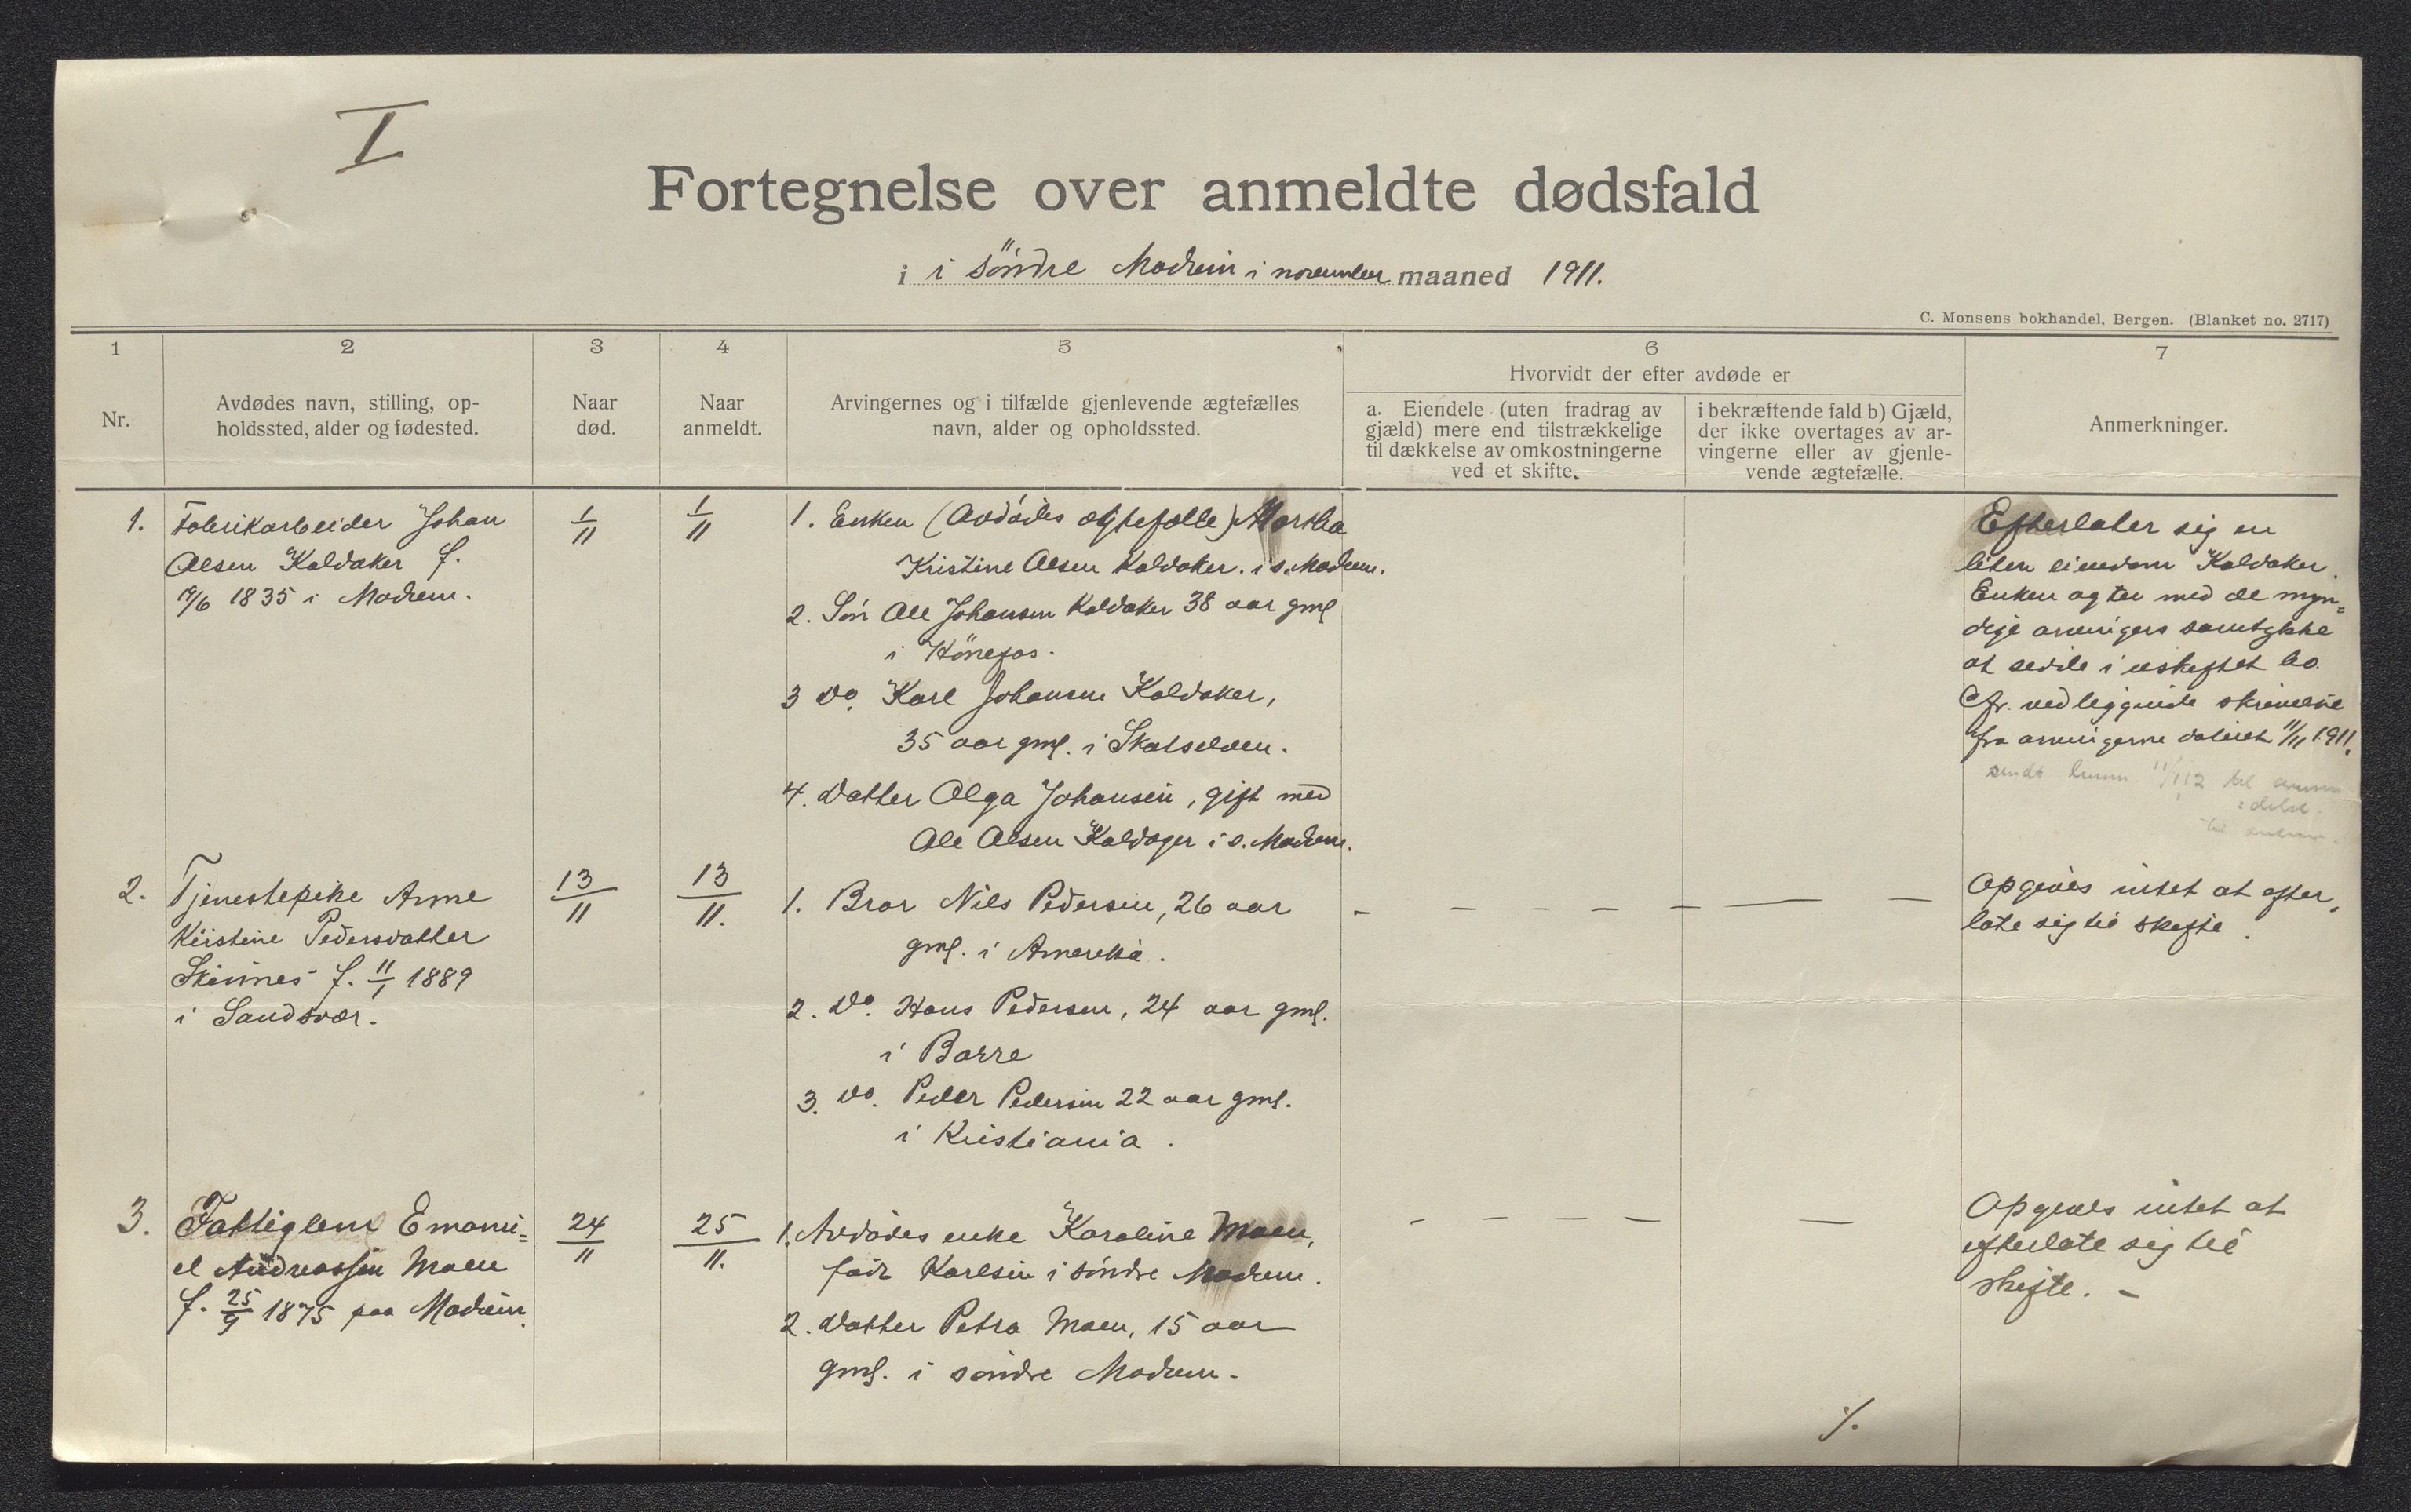 I
Fortegnelse over anmeldte dødsfald
i i söndre Modum i november maaned 1911.
C. Monsens bokhandel, Bergen. (Blanket no. 2717)
1
2
3
4
5
6
7
Nr.
Avdødes navn, stilling, op-
holdssted, alder og fødested.
Naar
død.
Naar
anmeldt.
Arvingernes og i tilfælde gjenlevende ægtefælles
navn, alder og opholdssted.
Hvorvidt der efter avdøde er
a. Eiendele (uten fradrag av
gjæld) mere end tilstrækkelige
til dækkelse av omkostningerne
ved et skifte.
i bekræftende fald b) Gjæld,
der ikke overtages av ar-
vingerne eller av gjenle-
vende ægtefælle.
Anmerkninger.
1.
Fabrikarbeider Johan
Olsen Kaldaker f.
/6 1835 i Modum.
1/11
1/11
1. Enken (Avdødes egtefælle) Martha
Kristine Olsen Kaldaker. i s. Modum.
2. Sön Ole Johansen Kaldaker 38 aar gml
i Hönefos.
3 do. Karl Johansen Kaldaker,
35 aar gml. i Skotselven.
4. Datter Olga Johansen, gift med
Ole Olsen Kaldager i s. Modum.
Efterlater sig en
liten eiendom Kaldaker.
Enken agter med de myn=
dige arvingers samtykke
at sidde i uskiftet bo.
Cfr. vedliggende skrivelse
fra arvingerne dateret 11/11 1911.
sendt
til
2.
Tjenestepike Anne
Kirstine Pedersdatter
Skinnes f. 11/1 1889
i Sandsvær.
13/11
13/11.
1. Bror Nils Pedersen, 26 aar
gml. i Amerika.
2. do. Hans Pedersen, 24 aar gml.
i Borre
3. do. Peder Pedersen 22 aar gml.
i Kristiania.
– – – – – — —
Opgives intet at efter,
late sig til skifte.
3.
Fattiglem Emanu=
el Andreassen Moen
f. 25/9 1875 paa Modum.
24/11
25/11.
1. Avdødes enke Karoline Moen,
född Karlsen i söndre Modum.
2. Datter Petra Moen, 15 aar
gml. i söndre Modum.
– – – – —
Opgives intet at
efterlate sig til
skifte. –
./.